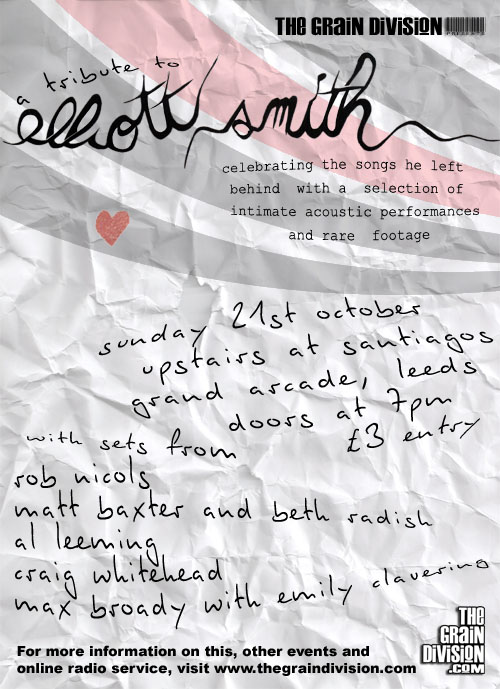 THE GRAIN DIVISION
a tribute to
elliott smith
celebrating the songs he left
behind with a selection of
intimate acoustic performances
and rare footage
sunday 21st october
upstairs at santiagos
grand arcade, leeds
doors at 7pm
£3 entry
with sets from
rob nicols
matt baxter and beth radish
al leeming
craig whitehead
max broady with emily clavering
THE
GRAIN
DIVISION
.COM
For more information on this, other events and
online radio service, visit www.thegraindivision.com